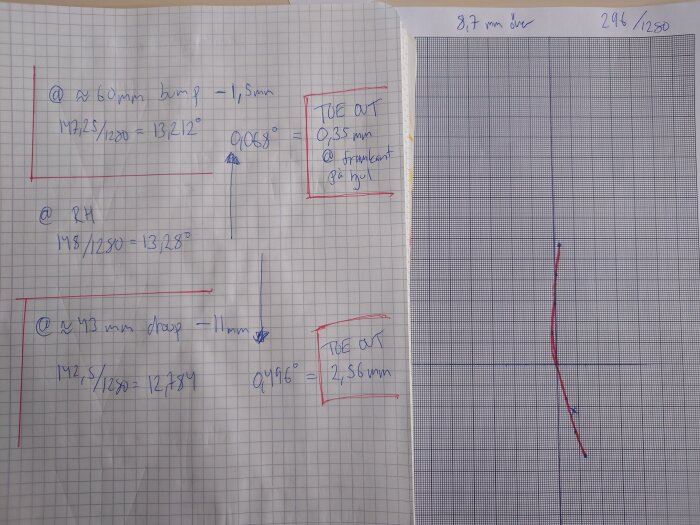 @ ≈ 60mm bump - 1,5mm
147,25/1280 = 13,212°
0,068° =
TOE OUT
0,35mm
@ framkant
på hjul
@ RH
148/1280 = 13,28°
@ ≈ 43 mm droop - 11mm
142,5/1280 = 12,784
0,496° =
TOE OUT
2,56mm
8,7 mm över
296/1280